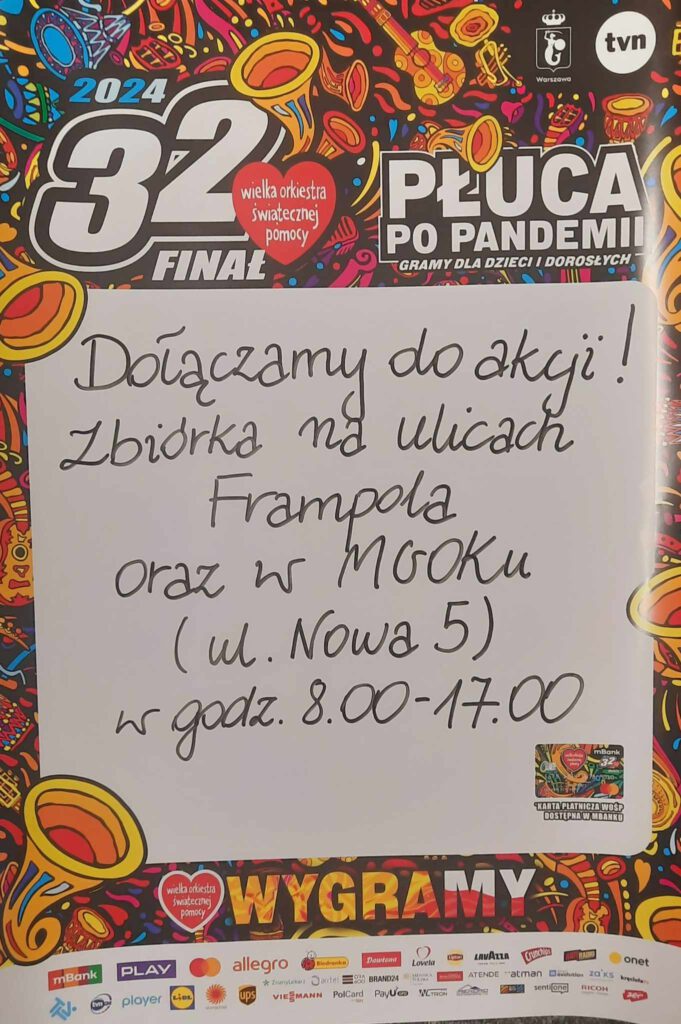 2024
32
FINAŁ
wielka orkiestra
świątecznej
pomocy
Warszawa
tvn
PŁUCA
PO PANDEMII
GRAMY DLA DZIECI I DOROSŁYCH
Dołączamy do akcji!
Zbiórka na ulicach
Frampola
oraz w MGOKu
(ul. Nowa 5)
w godz. 8.00-17.00
mBank
32
KARTA PŁATNICZA WOŚP
DOSTĘPNA W MBANKU
wielka orkiestra
świątecznej
pomocy
WYGRAMY
mBank PLAY allegro Biedronka Dawtona Lovela Lipton LAVAZZA Crunchips onet
ZnanyLekarz BRAND24 ATENDE atman evolution ZAiKS
tvn player LIDL ups VIESSMANN PolCard PayU sentione RICOH